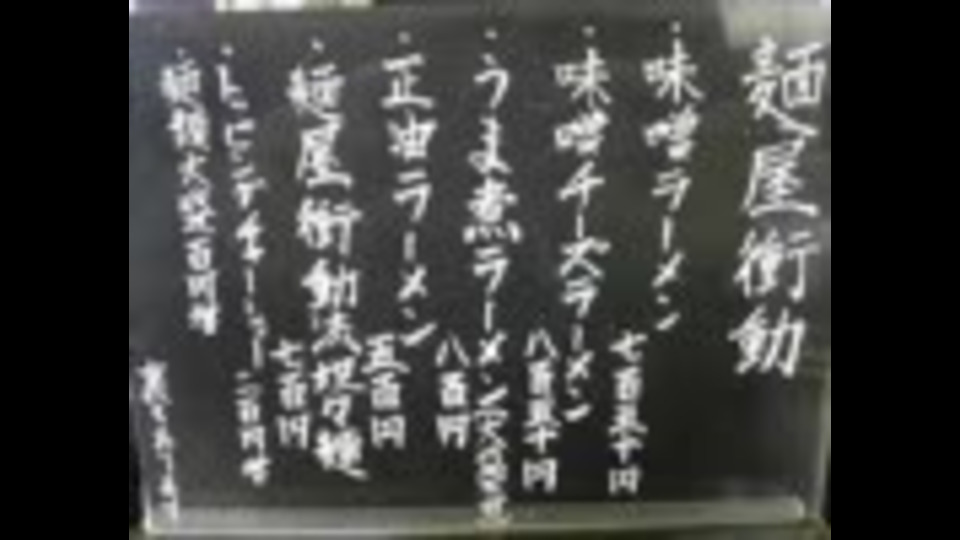 麺屋衝動
・味噌ラーメン
七百五十円
・味噌チーズラーメン
八百五十円
・うま煮ラーメン
八百円
・正油ラーメン
五百円
・麺屋衝動
坦々麺
七百円
・トッピングチャーシュー 二百円
・麺類大盛百円増